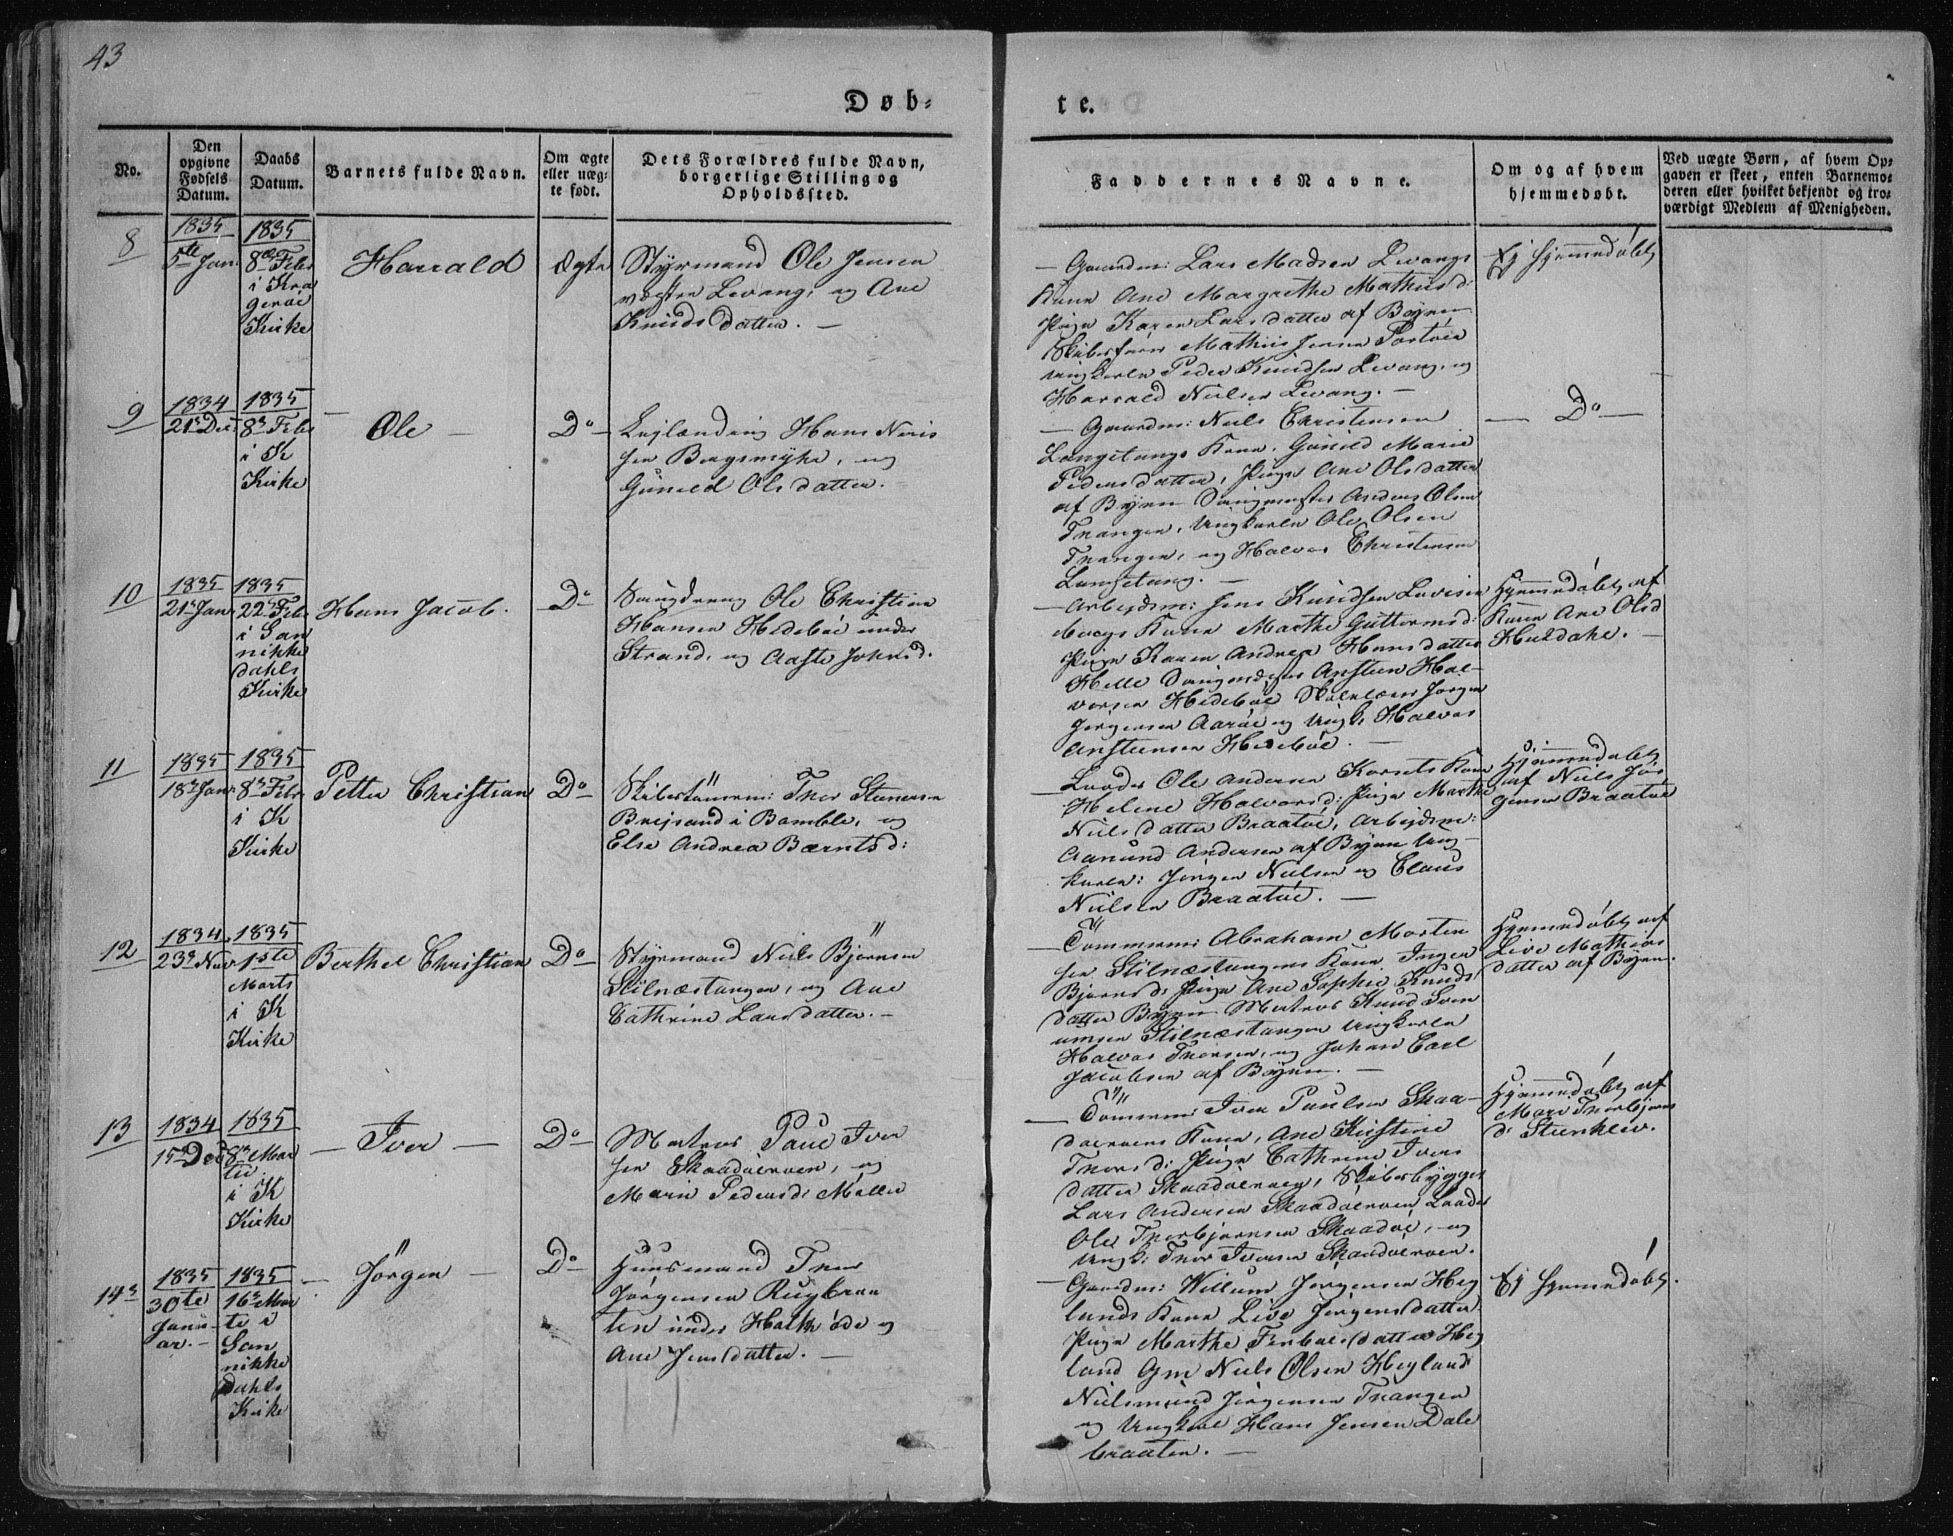 43
Døb-
te.
No.
Den
opgivne
Fødsels
Datum.
Daabs
Datum.
Barnets fulde Navn.
Om ægte
eller uæg-
te født.
Dets Forældres fulde Navn,
borgerlige Stilling og
Opholdssted.
Faddernes Navne.
Om og af hvem
hjemmedøbt.
Ved uægte Børn, af hvem Op-
gaven er skeet, enten Barnemo-
deren eller hvilket bekjendt og tro-
værdigt Medlem af Menigheden.
8
1835
5te Jan:
1835
8de Febr
i Kra
gerøe
Kirke
Harrald
Ægte
Styrmand Ole Jensen
vestre Levang, og Ane
Knudsdatter. —
— Gaardm: Lars Madsen Levangs
Kone Ane Margrethe Mathiisd:
Pige Karen Larsdatter af Byen
Skibsfører Mathiis Jensen Portøe
Ungkarle Peder Knudsen Levang, og
Harrald Nielsen Levang. —
Ej hjemmedøbt
9
1834
21de Dec:
1835
8de Febr
i K
Kirke
— Ole —
Do —
Lejlænding Hans Niels
sen Bergsmyhr, og
Gunild Olsdatter.
— Gaardm: Niels Christensen
Langetangs Kone, Gunild Marie
Pedersdatter, Pige Ane Olsdatter
af Byen Anders Olsen
Trangen, Ungkarle Ole Olsen
Trangen, og Halvor Christensen
Langetang. —
— Do —
10
1835
21de Jan:
1835
22de Febr
i San
nikke
dahls
Kirke
Hans Jacob.
Do
Ole Christian
Hansen Hedebøe under
Strand, og Aaste Johnsd.
— Arbejdsm: Jens Knudsen Lovisen
bergs Kone Marthe Guttormsd:
Pige Karen Andrea Hansdatter
Helle Anstein Hal-
vorsen Hedebøe Jørgen
Jørgensen Aarøe og Ungk: Halvor
Ansteinsen Hedebøe. —
Hjemmedøbt af
Kone Ane Olsd
Huldahl. —
11
1835
18de Jan:
1835
8de Febr
i K
Kirke
Petter Christian
Do —
Skibstømrem: Thor Steensen
Brejsand i Bamble, og
Else Andrea Bærntsd:
— Laads Ole Andersen Korsets Kone
Helene Halvorsd: Pige Marthe
Nielsdatter Braatøe, Arbejdsm:
Aanund Andersen af Byen Ung-
karle: Jørgen Nielsen og Claus
Nielsen Braatøe. —
Hjemmedøbt
af Niels Jør
gensen Braatøe
12
1834
23de Nov
1835
1ste
Marts
i K
Kirke
Berthel Christian
Do —
Styrmand Niels Bjørnsen
Stilnæstangen, og Ane
Cathrine Larsdatter. —
— Tømmerm: Abraham Morten
sen Stilnæstangens Kone Inger
Bjørnsd: Pige Ane Sophie Knuds
datter Byen Matros Knud Sven
umsen Stilnæstangen Ungkarle
Halvor Thorsen, og Johan Carl
Jacobsen af Byen. —
Hjemmedøbt af
Live Mathias
datter af Byen.
13
1834
15de Dec
1835
8de Mar
tii
i K
Kirke
— Iver —
Do —
Matros Paul Iver
sen Skaadøerøen, og
Marie Pedersd: Møller
— Tømmerm: Iver Paulsen Skaa-
døerøens Kone, Ane Kirstine
Thorsd: Pige Cathrine Ivers
datter Skaadøerøen, Skibsbygger
Lars Andersen Skaadøerøen Laads
Ole Thorbjørnsen Skaadøe, og
Ungk: Thor Iversen Skaadøerøen.
Hjemmedøbt af
Mari Thorbjørns
d: Steenkløv.
14
1835
30te
Janu-
ar. —
1835
16de Mar
tii i
San
nikke
dahls
Kirke
— Jørgen —
Do —
Huusmand Thor
Jørgensen Rugbraa
ten under Holte øde og
Ane Jensdatter. —
— Gaardm: Willum Jørgensen Heg
lands Kone Live Jørgensdatter
Pige Marthe Heg
land Gm Niels Olsen Hegland
Jørgensen Trangen
og Ungkarl Hans Jensen Dale
braaten. —
Ej hjemmedøbt.